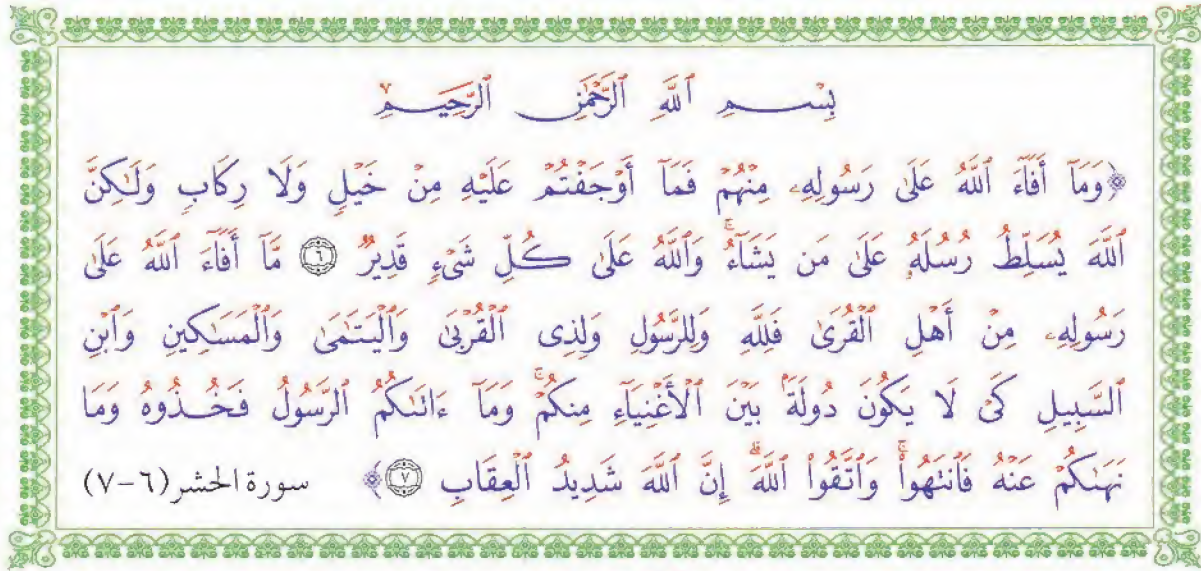 بِسْمِ ٱللَّهِ ٱلرَّحْمَٰنِ ٱلرَّحِيمِ
﴿وَمَآ أَفَآءَ ٱللَّهُ عَلَىٰ رَسُولِهِۦ مِنْهُمْ فَمَآ أَوْجَفْتُمْ عَلَيْهِ مِنْ خَيْلٍ وَلَا رِكَابٍ وَلَٰكِنَّ
ٱللَّهَ يُسَلِّطُ رُسُلَهُۥ عَلَىٰ مَن يَشَآءُۚ وَٱللَّهُ عَلَىٰ كُلِّ شَىْءٍ قَدِيرٌ ٦ مَّآ أَفَآءَ ٱللَّهُ عَلَىٰ
رَسُولِهِۦ مِنْ أَهْلِ ٱلْقُرَىٰ فَلِلَّهِ وَلِلرَّسُولِ وَلِذِى ٱلْقُرْبَىٰ وَٱلْيَتَٰمَىٰ وَٱلْمَسَٰكِينِ وَٱبْنِ
ٱلسَّبِيلِ كَىْ لَا يَكُونَ دُولَةًۢ بَيْنَ ٱلْأَغْنِيَآءِ مِنكُمْۚ وَمَآ ءَاتَىٰكُمُ ٱلرَّسُولُ فَخُذُوهُ وَمَا
نَهَىٰكُمْ عَنْهُ فَٱنتَهُوا۟ۚ وَٱتَّقُوا۟ ٱللَّهَۖ إِنَّ ٱللَّهَ شَدِيدُ ٱلْعِقَابِ ٧﴾ سورة الحشر (٦-٧)